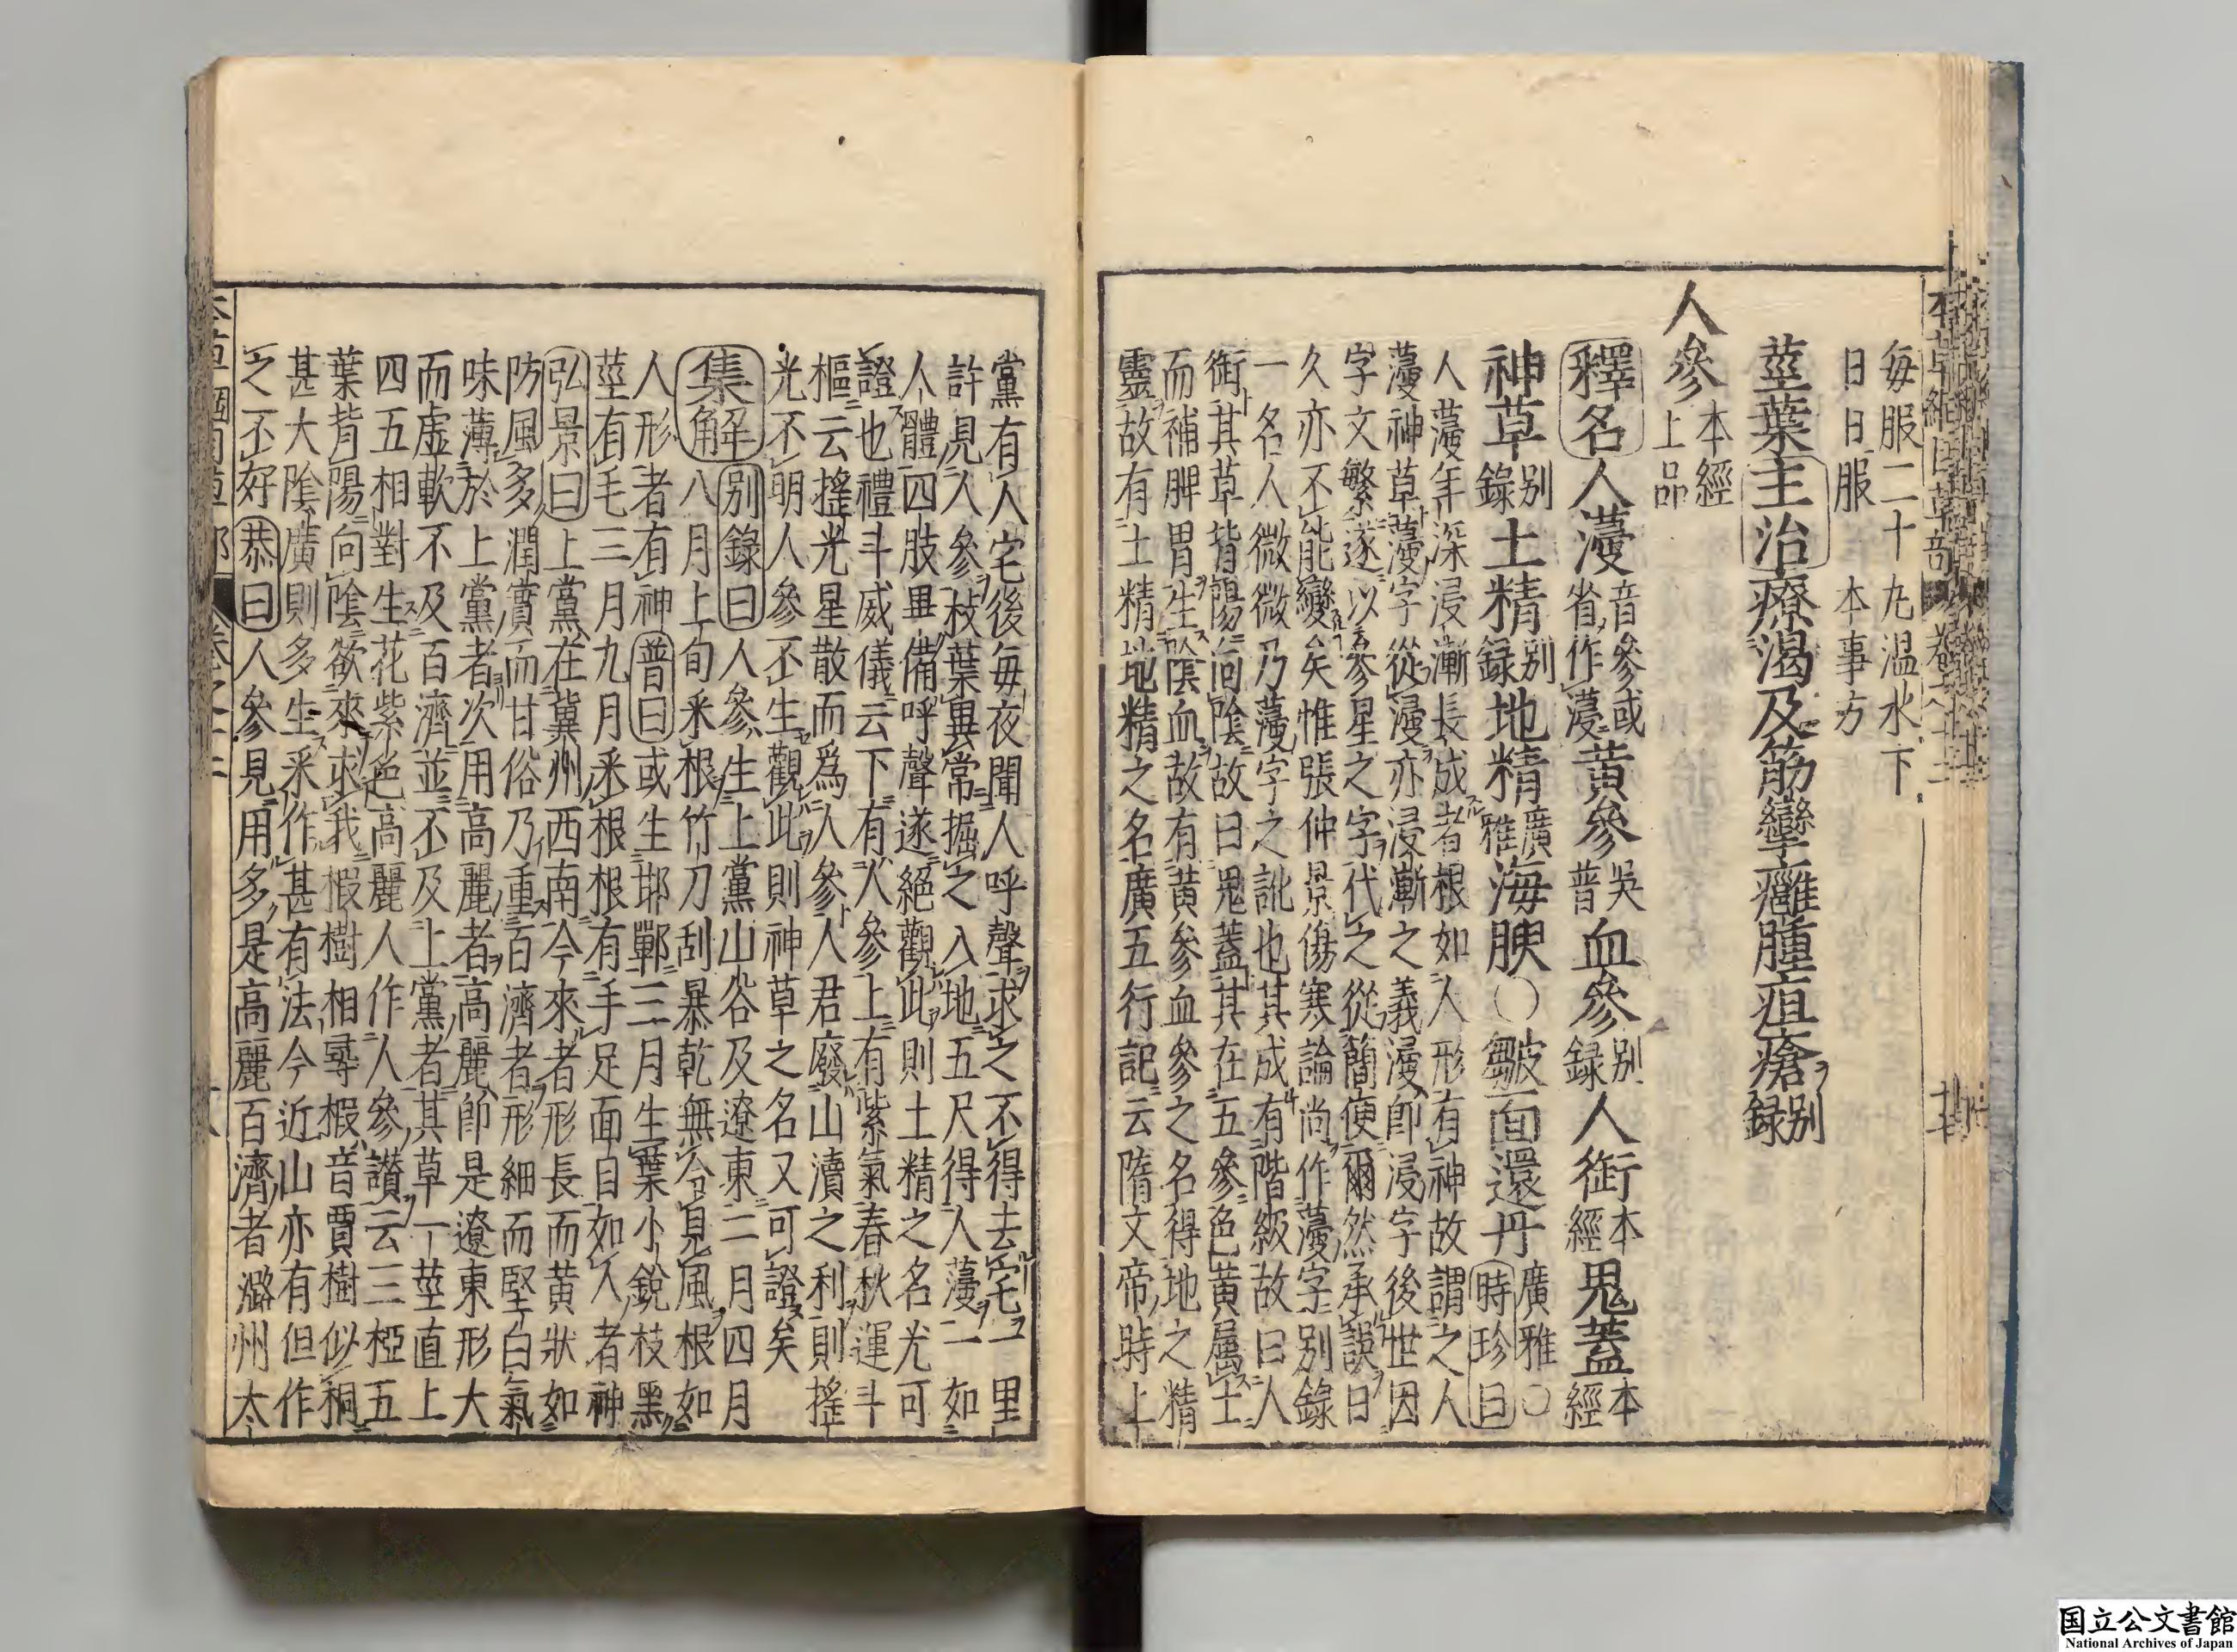 毎服二十丸温水下
日日服 本事方
莖葉主治療渴及筋攣癰腫疽瘡别録
人參本經上品
釋名人薓音參或省作葠黄參吳普血參别録人銜本經鬼蓋本經
神草别錄土精别録地精廣雅海腴〇皺面還丹廣雅〇時珍曰
人薓年深浸漸長成者根如人形有神故謂之人
薓神草薓字從浸亦浸漸之義浸即浸字後世因
字文繁遂以參星之字代之從簡便爾然承誤日
久亦不能變矣惟張仲景傷寒論尚作薓字别錄
一名人微微乃薓字之訛也其成有階級故曰人
銜其草背陽向陰故曰鬼蓋其在五參色黄屬土
而補脾胃生陰血故有黄參血參之名得地之精
靈故有土精地精之名廣五行記云隋文帝時上
黨有人宅後毎夜聞人呼聲求之不得去宅一里
許見人參枝葉異常掘之入地五尺得人薓一如
人體四肢畢備呼聲遂絕觀此則土精之名尤可
證也禮斗威儀云下有人參上有紫氣春秋運斗
樞云搖光星散而爲人參人君廢山瀆之利則搖
光不明人參不生觀此則神草之名又可證矣
集解别錄曰人參生上黨山谷及遼東二月四月
八月上旬采根竹刀刮暴乾無令見風根如
人形者有神普曰或生邯鄲三月生葉小銳枝黑
莖有毛三月九月采根根有手足面目如人者神
弘景曰上黨在冀州西南今來者形長而黄狀如
防風多潤實而甘俗乃重百濟者形細而堅白氣
味薄於上黨者次用高麗者高麗即是遼東形大
而虛軟不及百濟並不及上黨者其草一莖直上
四五相對生花紫色高麗人作人參讃云三椏五
葉背陽向陰欲來求我椵樹相尋椵音賈樹似桐
甚大陰廣則多生采作甚有法今近山亦有但作
之不好恭曰人參見用多是高麗百濟者潞州太
国立公文書館
National Archives of Japan